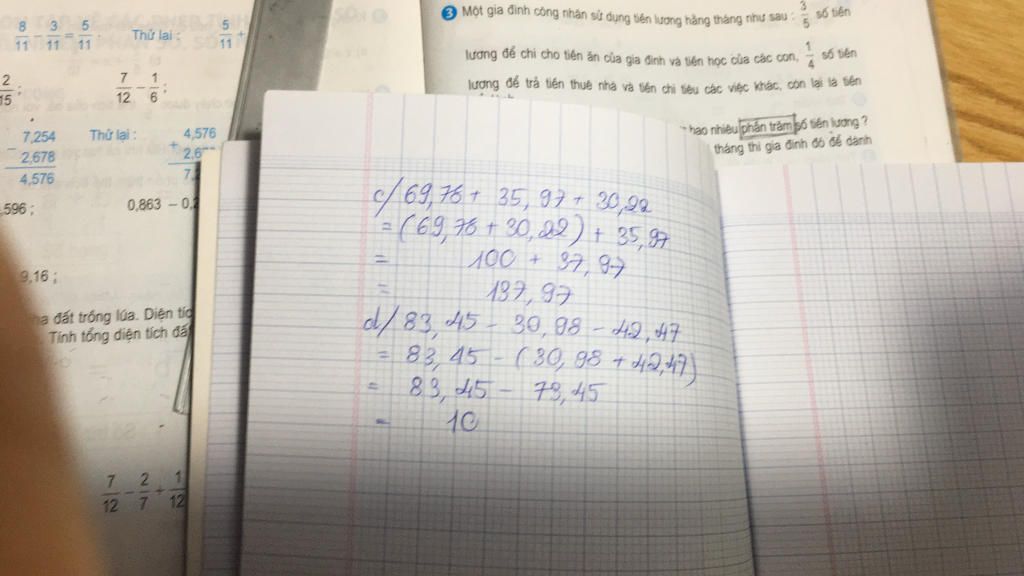 8/11 - 3/11 = 5/11 Thử lại : 5/11 +
2/15 ; 7/12 - 1/6 ;
- 7,254 Thử lại : 4,576
2,678 +
4,576
,596 ; 0,863 - 0,
9,16 ;
ha đất trồng lúa. Diện
Tính tổng diện tích
7/12 - 2/7 + 1/12
3 Một gia đình công nhân sử dụng tiền lương hằng tháng như sau : 3/5 số tiền
lương để chi cho tiền ăn của gia đình và tiền học của các con, 1/4 số tiền
lương để trả tiền thuê nhà và tiền chi tiêu các việc khác, còn lại là tiền
bao nhiêu phần trăm số tiền lương ?
tháng thì gia đình đó để dành
c/ 69,78 + 35,97 + 30,22
= (69,78 + 30,22) + 35,97
= 100 + 37,97
= 137,97
d/ 83,45 - 30,98 - 42,47
= 83,45 - (30,98 + 42,47)
= 83,45 - 73,45
= 10